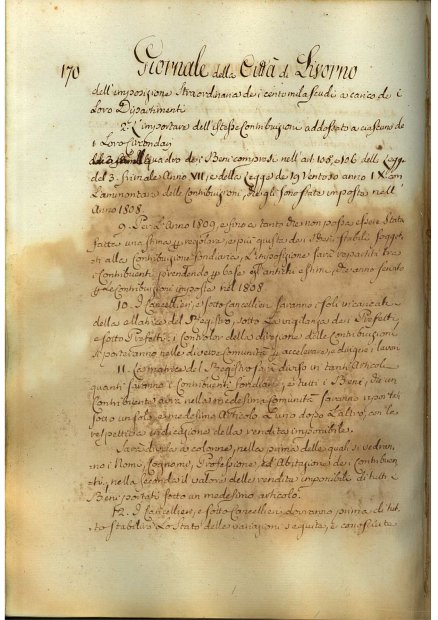 170 Giornale della Città di Livorno
dell'imposizione Straordinaria dei centomila scudi a carico dei
Loro Dipartimenti
2. L'importare dell'istesse Contribuzioni addossato a ciascuno de
i Loro Circondarj
Quadro dei Beni compresi nell'art. 105, e 106 della Legge
del 3. Frimale Anno VII, e della Legge de 19 Ventoso anno 1 X con
L'ammontare delle Contribuzioni, che gli sono state imposte nell'
Anno 1808.
9. Per L'Anno 1809, e fino a tanto che non possa essere stata
fatta una stima più regolare, e più giusta dei Beni stabili sogget-
ti alla Contribuzione fondiaria, L'imposizione sarà repartita tra
i Contribuenti, prendendo per base gl'antichi estimi, che anno servito
per Le Contribuzioni imposte nel 1808.
10. I Cancellieri, e sotto Cancellieri saranno i soli incaricati
della Matrice del Registro, sotto La vigilanza dei Prefetti,
e sotto Prefetti; i Controlor della direzione delle Contribuzioni
si porteranno nelle diverse Comunità per accelerare, e dirigere i lavori
11. La matrice del Registro sarà divisa in tanti Articoli
quanti saranno i Contribuenti fondiarj, e tutti i Beni, che un
Contribuente avrà nella medesima Comunità saranno riportati
sotto un solo, e medesimo Articolo L'uno dopo L'altro, con la
respettiva indicazione della rendita imponibile.
Sarà divisa in colonne, nella prima delle quali si vedran-
no i Nomi, Cognomi, Professione, ed Abitazione dei Contribuen-
ti, nella seconda il valore della rendita imponibile di tutti i
Beni portati sotto un medesimo articolo.
12. I Cancellieri, e sotto Cancellieri dovranno prima di tut-
to stabilire Lo stato delle variazioni seguite, e conosciute